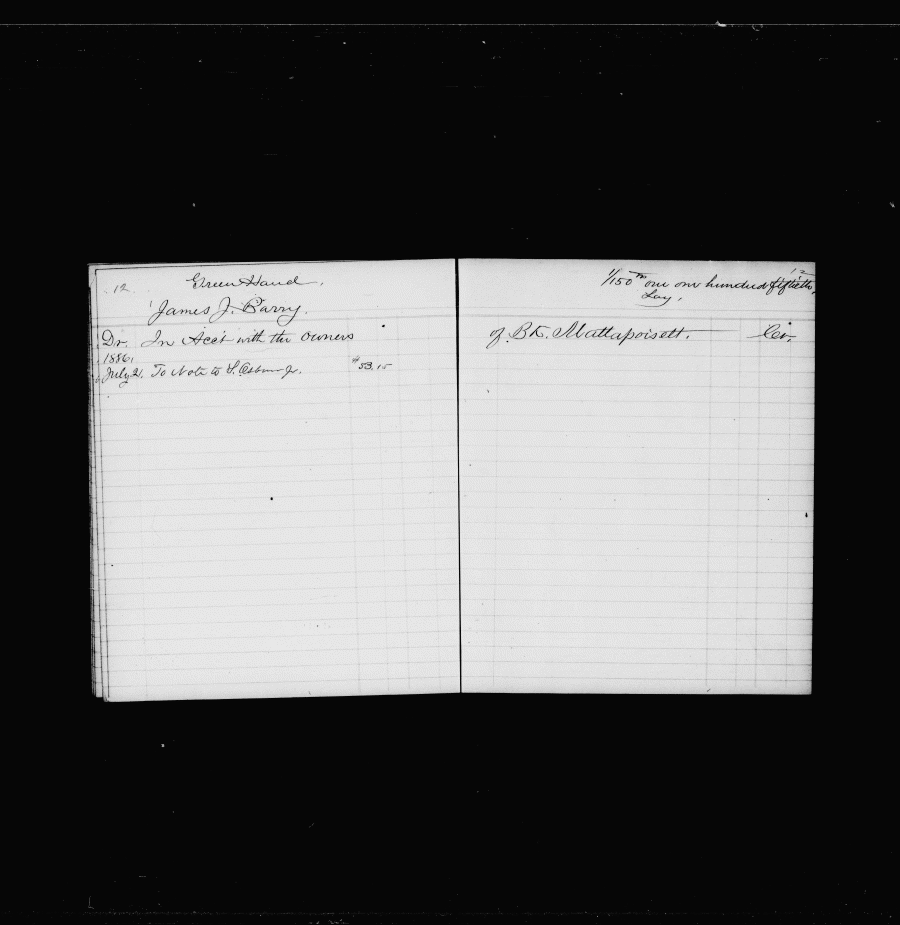 12.
Green Hand.
James J. Barry.
Dr. In Acct with the Owners
1886.
July 2. To Note to S. Osborn Jr. $53.15
12
1/150th one one hundred fiftieth
Lay.
of Bk. Mattapoisett. Cr.